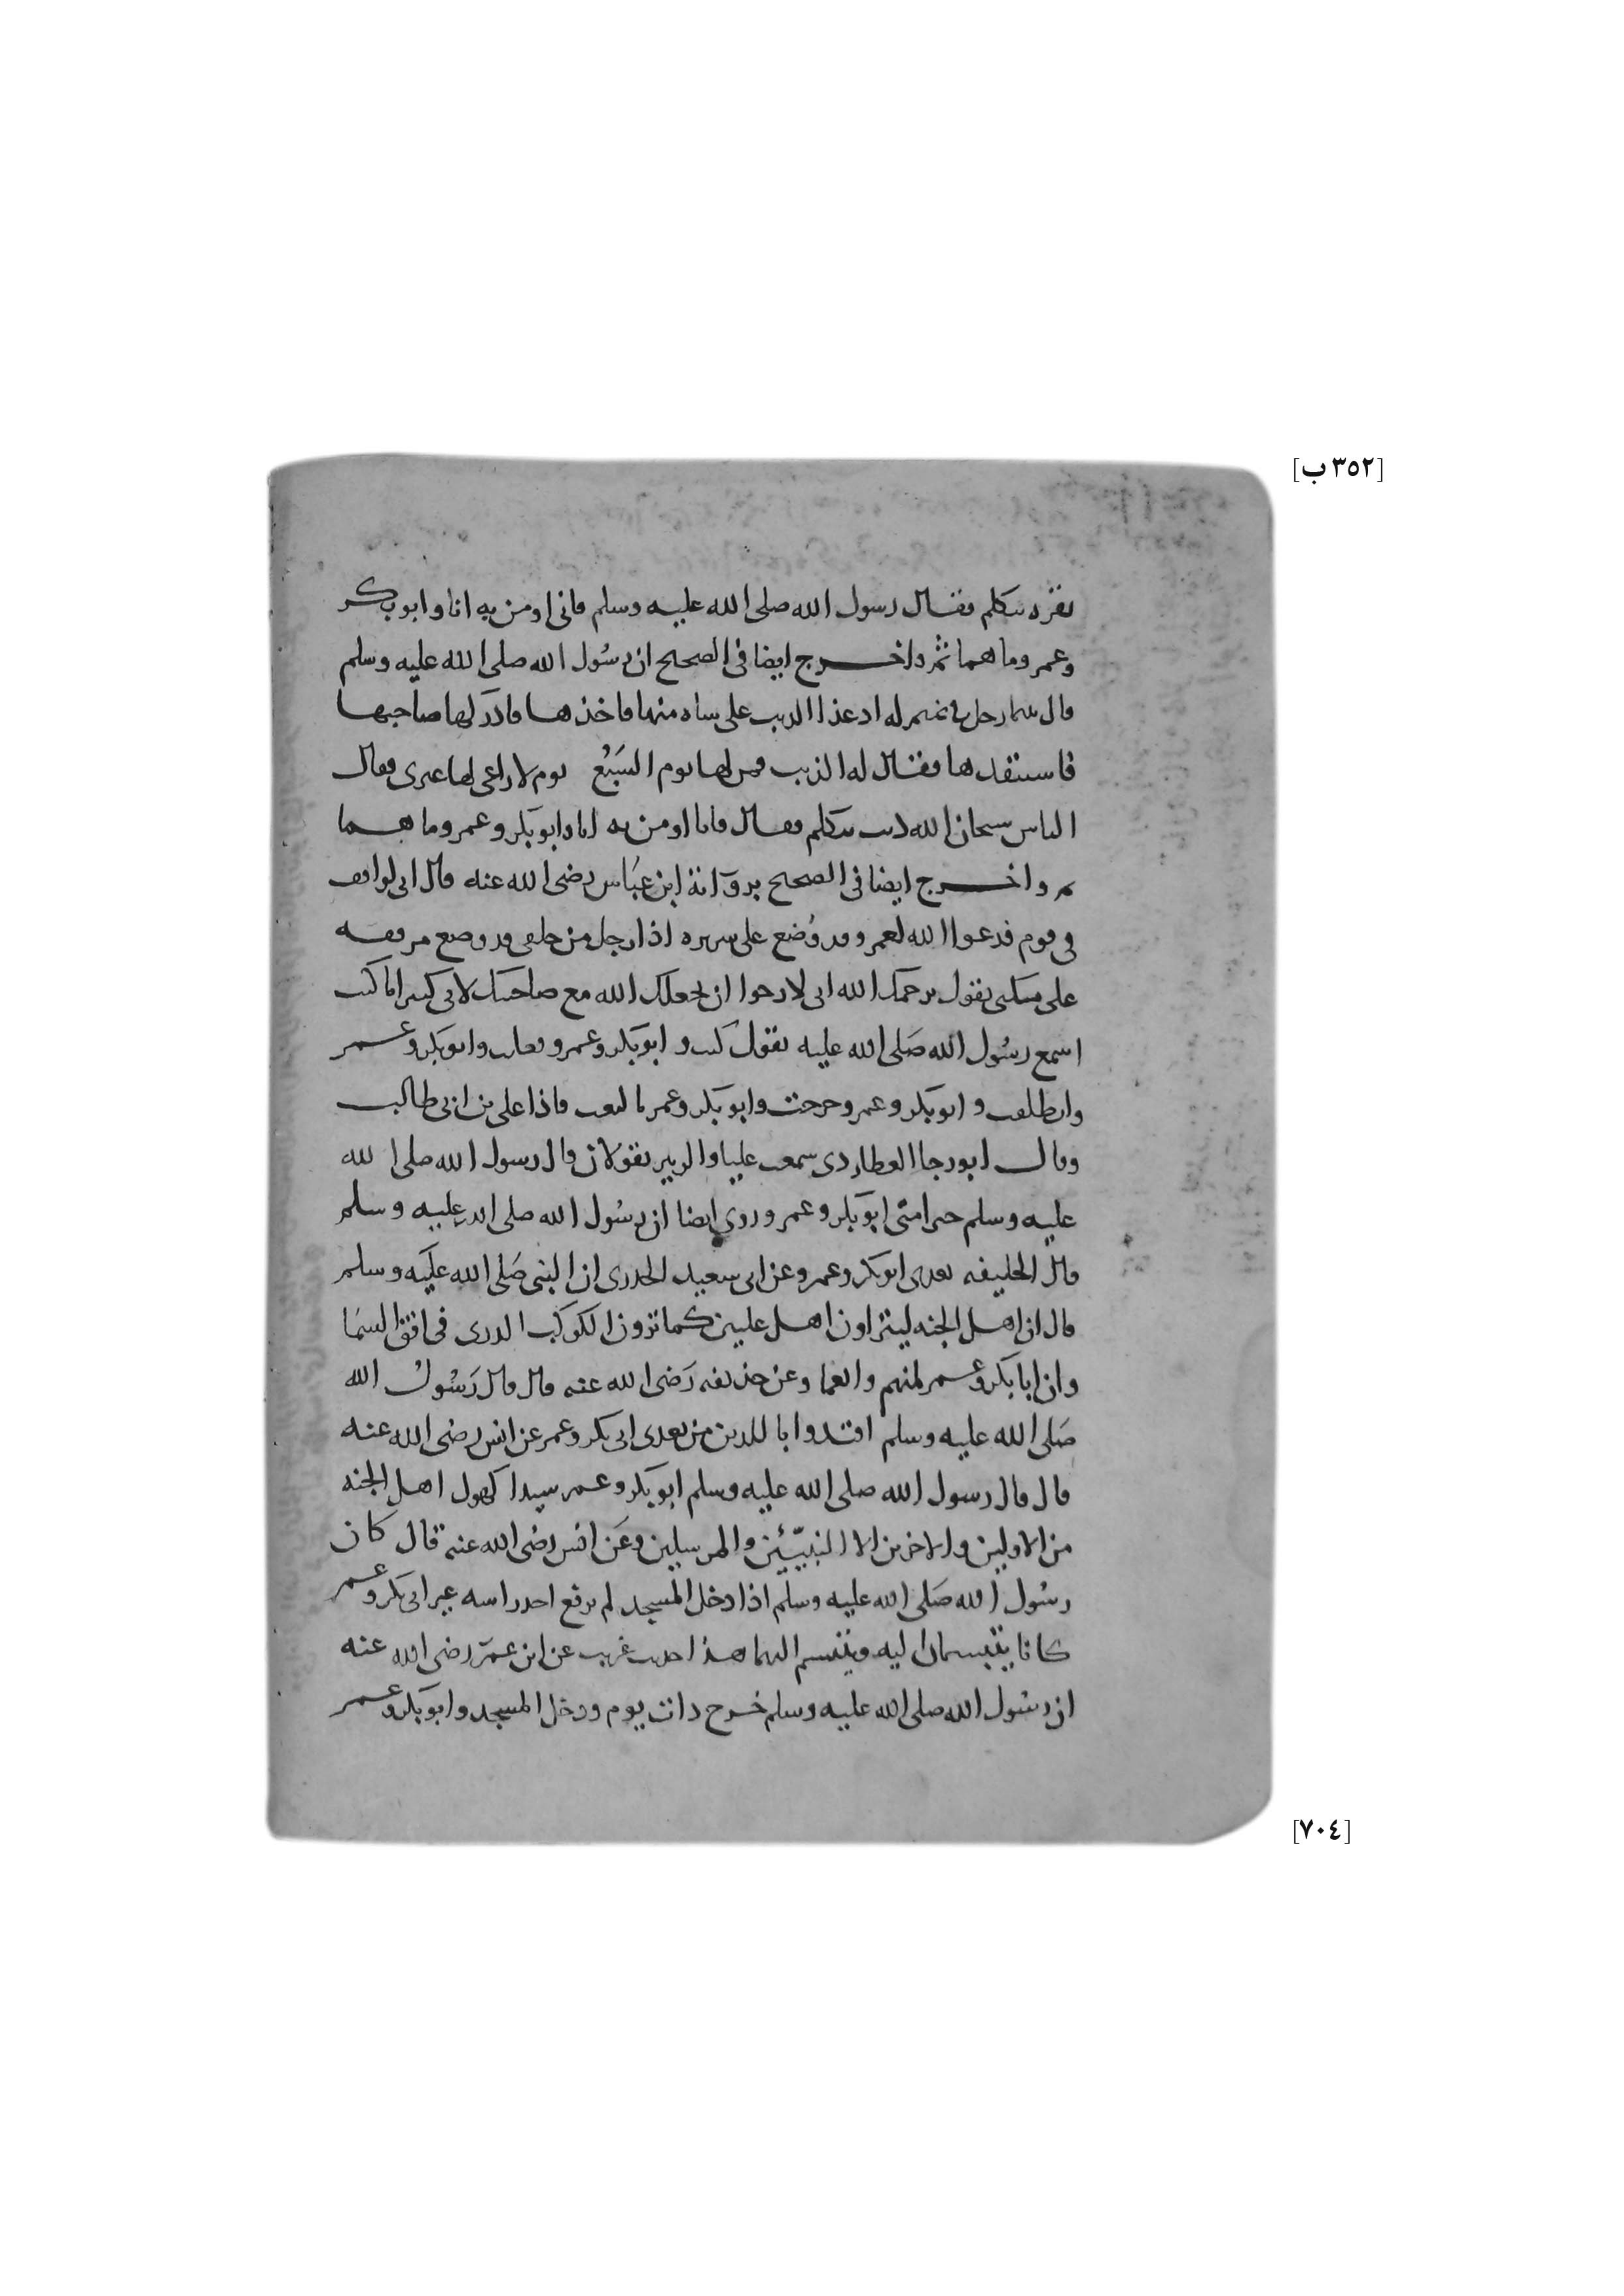 [٣٥٢ ب]
بقرة تتكلم فقال رسول الله صلى الله عليه وسلم فاني اومن به انا وابو بكر
وعمر وما هما ثم واخرج ايضا في الصحيح ان رسول الله صلى الله عليه وسلم
قال بينما رجل في غنم له اذ عدا الذيب على شاه منها فاخذها فادركها صاحبها
فاستنقذها فقال له الذيب فمن لها يوم السَبُع يوم لا راعي لها غيري فقال
الناس سبحان الله ذيب يتكلم فقال فانا اومن به انا وابو بكر وعمر وما هما
ثم واخرج ايضا في الصحيح برواية ابن عباس رضى الله عنه قال اني لواقف
في قوم فدعوا الله لعمر وقد وُضع على سريره اذا رجل من خلفي قد وضع مرفقه
على منكبي يقول يرحمك الله اني لارجوا ان يجعلك الله مع صاحبيك لاني كثيرا ما كنت
اسمع رسول الله صلى الله عليه يقول كنت وابو بكر وعمر وفعلت وابو بكر وعمر
وانطلقت وابو بكر وعمر وخرجت وابو بكر وعمر فالتفت فاذا على بن ابي طالب
وقال ابو رجا العطاردى سمعت عليا والزبير يقولان قال رسول الله صلى الله
عليه وسلم خير امتي ابو بكر وعمر وروي ايضا ان رسول الله صلى الله عليه وسلم
قال الخليفه بعدى ابو بكر وعمر وعن ابي سعيد الخدرى ان النبي صَلى الله عليه وسلم
قال ان اهل الجنه ليتراون اهل عليين كما ترون الكوكب الدرى في افق السما
وان ابا بكر وعمر لمنهم وانعما وعن حذيفه رَضى الله عنه قال قال رَسُول الله
صَلى الله عليه وسلم اقتدوا باللذين من بعدى ابي بكر وعمر عن انس رضى الله عنه
قال قال رسول الله صلى الله عليه وسلم ابو بكر وعمر سيدا كهول اهل الجنه
من الاولين والاخرين الا النبيّين والمرسلين وعَن انس رضى الله عنه قال كان
رسُول الله صَلى الله عليه وسلم اذا دخل المسجد لم يرفع احد راسه غير ابي بكر وعمر
كانا يتبسمان اليه ويتبسم اليهما هذا حديث غريب عن ابن عمر رضى الله عنه
ان رسُول الله صلى الله عليه وسلم خرج ذات يوم ودخل المسجد وابو بكر وعمر
[٧٠٤]